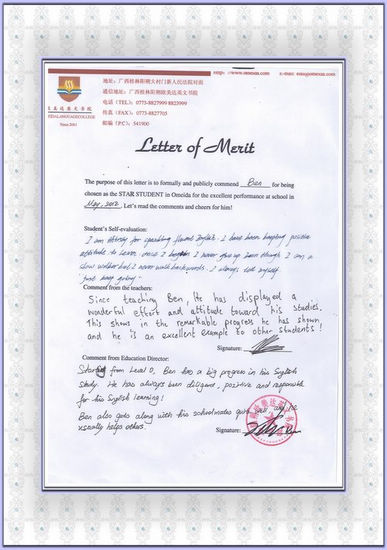 http://www.omexus.com
地址：广西桂林阳朔大村门新人民法院对面
通信地址：广西桂林阳朔欧美达英文书院
电话（TEL）：0773-8827999 8823999
传真（FAX）：0773-8827705
邮编（P.C）：541900
Since 2001
Letter of Merit
The purpose of this letter is to formally and publicly commend Ben for being
chosen as the STAR STUDENT in Omeida for the excellent performance at school in
May, 2012. Let's read the comments and cheers for him!
Student's Self-evaluation:
I am striving for sparkling fluent English. I have been keeping positive
attitude to learn, once I begin I never give up. Even though I am a
slow walker but I never walk backwards. I always tell myself
"Just keep going"
Comment from the teachers:
Since teaching Ben, He has displayed a
wonderful effort and attitude toward his studies.
This shows in the remarkable progress he has shown
and he is an excellent example to other students!
Signature:
Comment from Education Director:
Starting from Level 0, Ben has a big progress in his English
study. He has always been diligence, positive and responsible
for his English learning!
Ben also gets along with his schoolmates quite well and he
usually helps others.
Signature: